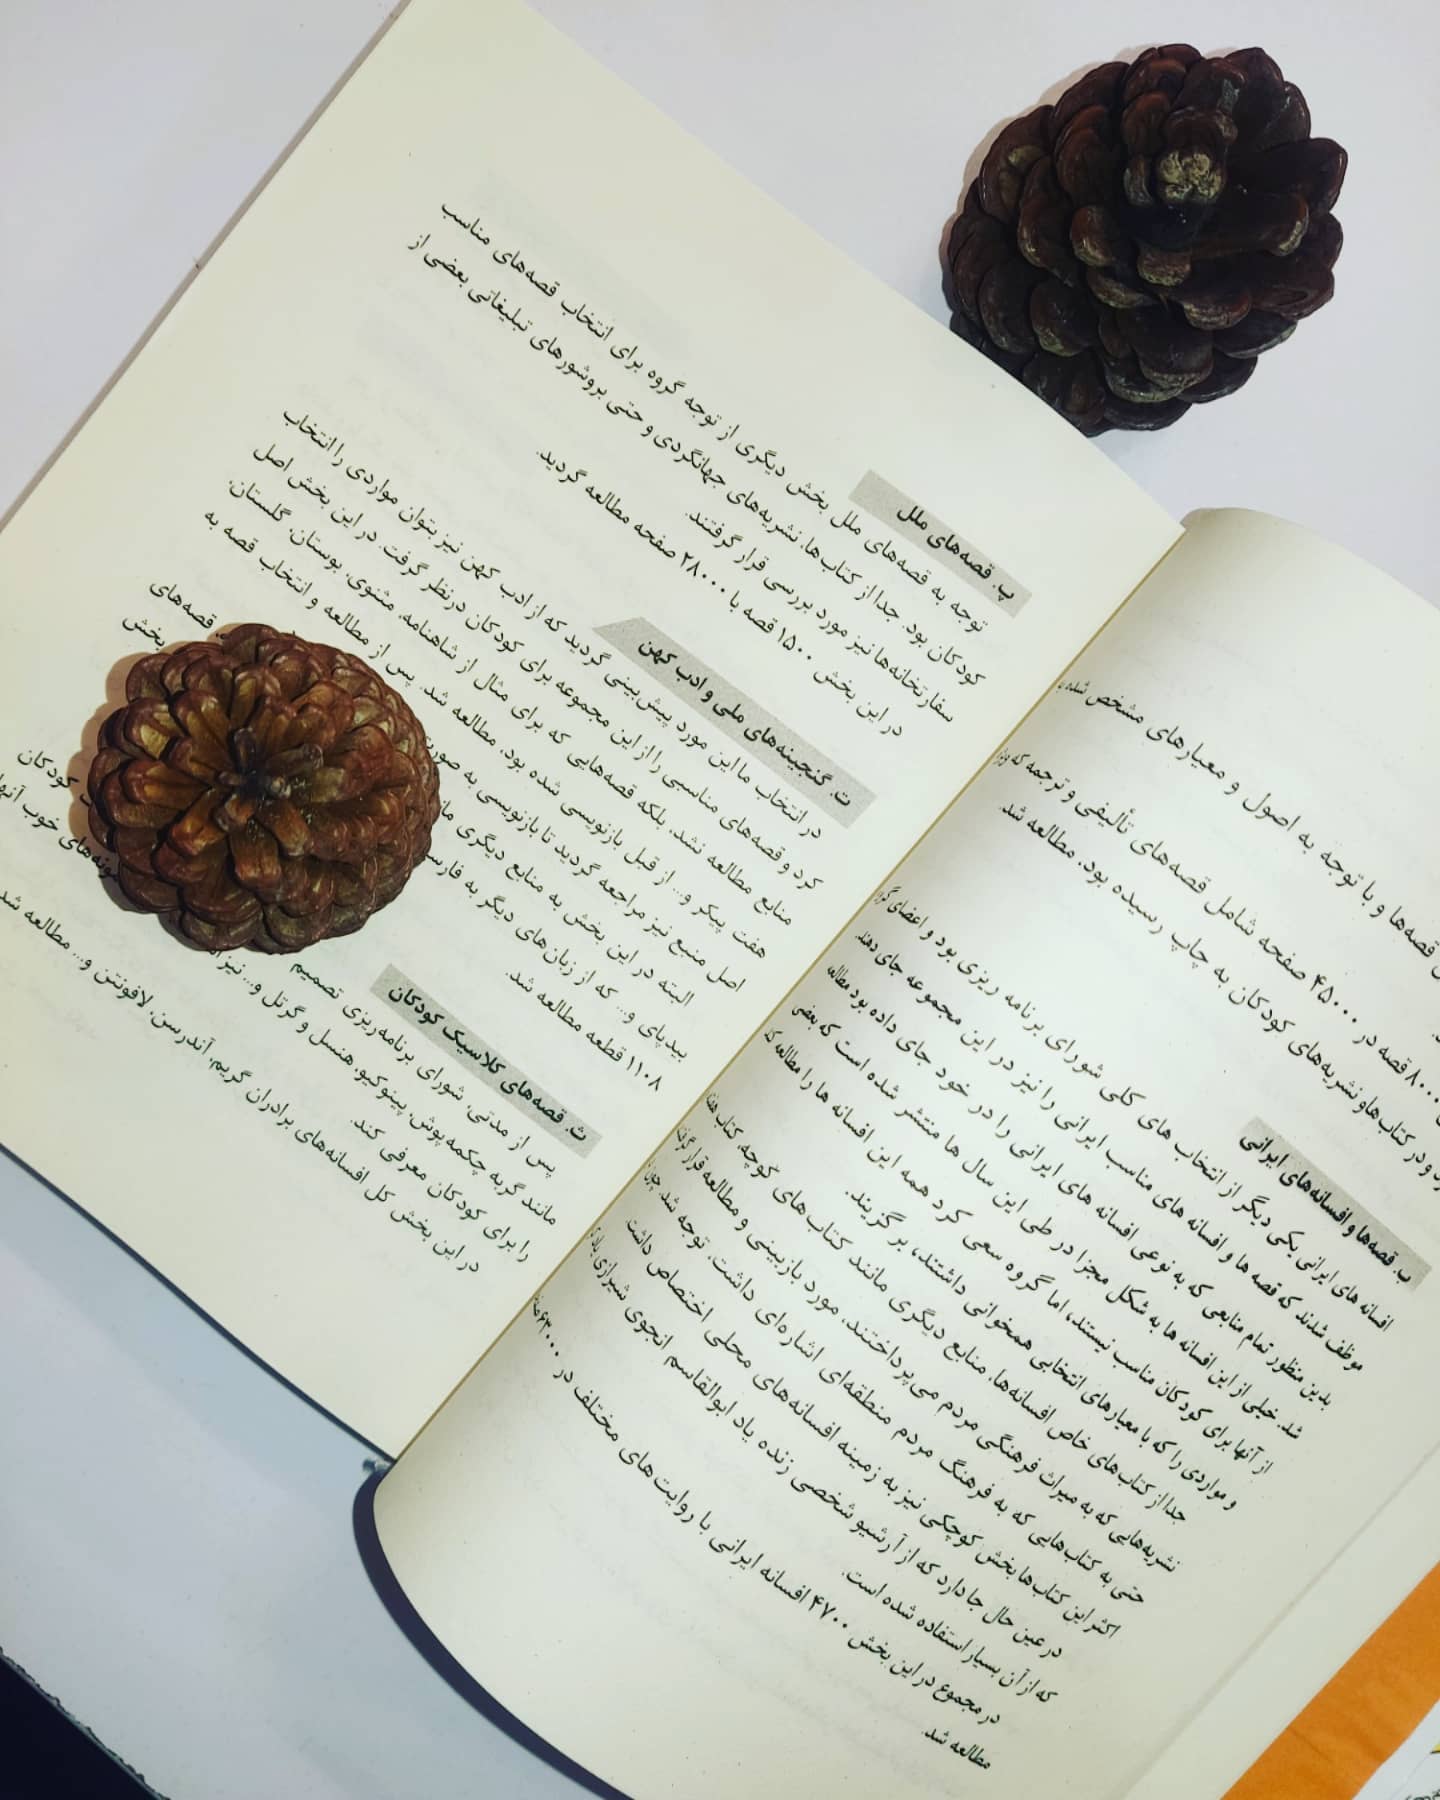 قصه‌ها و با توجه به اصول و معیارهای مشخص شده
۸۰۰۰ قصه در ۴۵۰۰۰ صفحه شامل قصه‌های تألیفی و ترجمه که
و در کتاب‌ها و نشریه‌های کودکان به چاپ رسیده بود، مطالعه شد.
ب. قصه‌ها و افسانه‌های ایرانی
افسانه های ایرانی یکی دیگر از انتخاب های کلی شورای برنامه ریزی بود و اعضای
موظف شدند که قصه ها و افسانه های مناسب ایرانی را نیز در این مجموعه جای دهند.
بدین منظور تمام منابعی که به نوعی افسانه های ایرانی را در خود جای داده بود مطالعه
شد. خیلی از این افسانه ها به شکل مجزا در طی این سال ها منتشر شده است که بعضی
از آنها برای کودکان مناسب نیستند، اما گروه سعی کرد همه این افسانه ها را مطالعه
و مواردی را که با معیارهای انتخابی همخوانی داشتند، برگزیند.
جدا از کتاب‌های خاص افسانه‌ها، منابع دیگری مانند کتاب‌های کوچه، کتاب
نشریه‌هایی که به میراث فرهنگی مردم می‌پرداختند، مورد بازبینی و مطالعه قرار
حتی به کتاب‌هایی که به فرهنگ مردم منطقه‌ای اشاره‌ای داشت، توجه شد چون
اکثر این کتاب‌ها بخش کوچکی نیز به زمینه افسانه‌های محلی اختصاص داشت
در عین حال جا دارد که از آرشیو شخصی زنده یاد ابوالقاسم انجوی شیرازی
که از آن بسیار استفاده شده است.
در مجموع در این بخش ۴۷۰۰ افسانه ایرانی با روایت های مختلف در ۶۳۰۰۰
مطالعه شد.
پ. قصه‌های ملل
توجه به قصه‌های ملل بخش دیگری از توجه گروه برای انتخاب قصه‌های مناسب
کودکان بود. جدا از کتاب‌ها، نشریه‌های جهانگردی و حتی بروشورهای تبلیغاتی بعضی از
سفارتخانه‌ها نیز مورد بررسی قرار گرفتند.
در این بخش ۱۵۰۰ قصه با ۲۸۰۰۰ صفحه مطالعه گردید.
ت. گنجینه‌های ملی و ادب کهن
در انتخاب ما این مورد پیش‌بینی گردید که از ادب کهن نیز بتوان مواردی را انتخاب
کرد و قصه‌های مناسبی را از این مجموعه برای کودکان درنظر گرفت. در این بخش اصل
منابع مطالعه نشد، بلکه قصه‌هایی که برای مثال از شاهنامه، مثنوی، بوستان، گلستان،
هفت پیکر و... از قبل بازنویسی شده بود، مطالعه شد. پس از مطالعه و انتخاب قصه به
اصل منبع نیز مراجعه گردید تا بازنویسی به قصه‌های
البته در این بخش به منابع دیگری بخش
بیدپای و... که از زبان‌های دیگر به
۱۱۰۸ قطعه مطالعه شد.
ث. قصه‌های کلاسیک کودکان
پس از مدتی، شورای برنامه‌ریزی تصمیم کودکان
مانند گربه چکمه‌پوش، پینوکیو، هنسل و گرتل و... نیز خوب آنها
را برای کودکان معرفی کند.
در این بخش کل افسانه‌های برادران گریم، آندرسن، لافونتن و... مطالعه شد